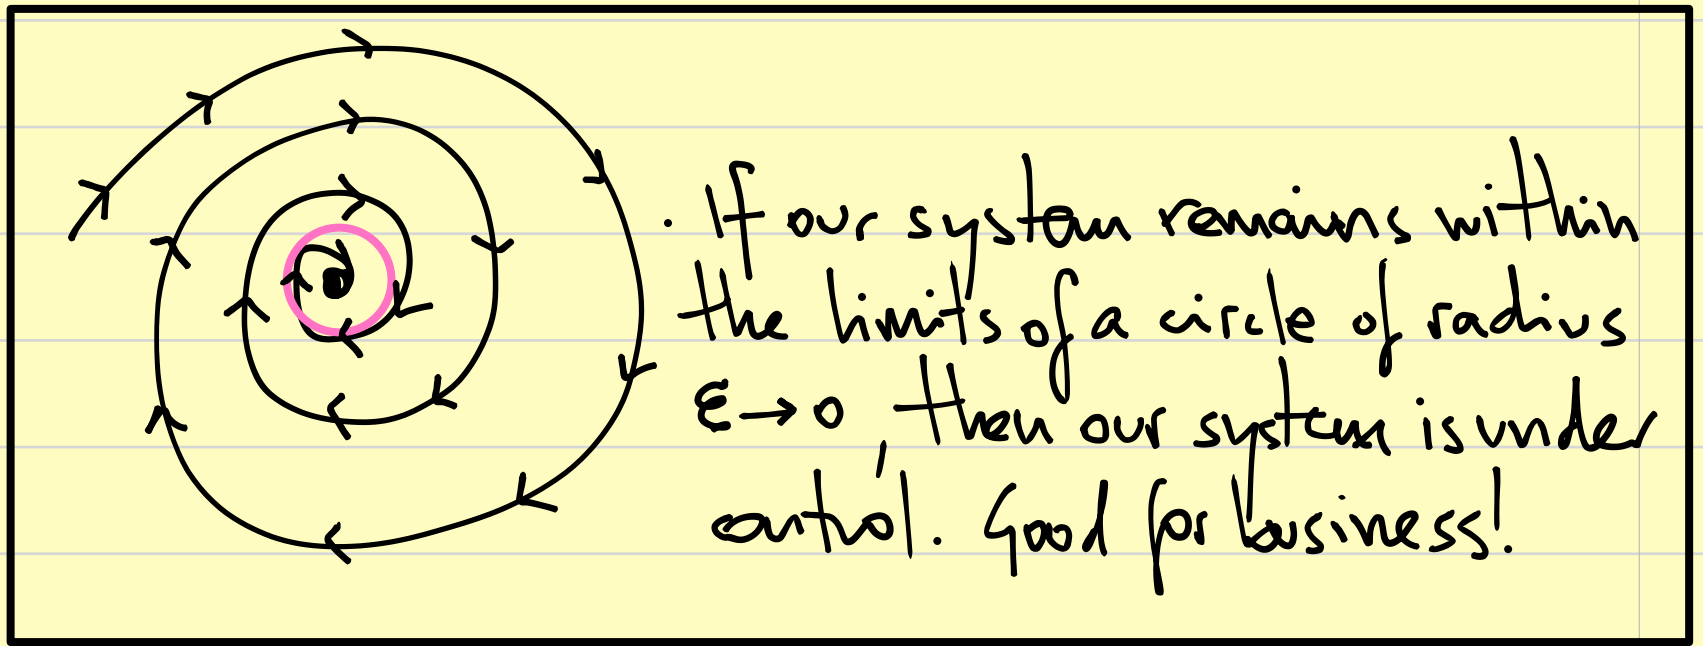 . If our system remains within
the limits of a circle of radius
ε → 0, then our system is under
control. Good for business!